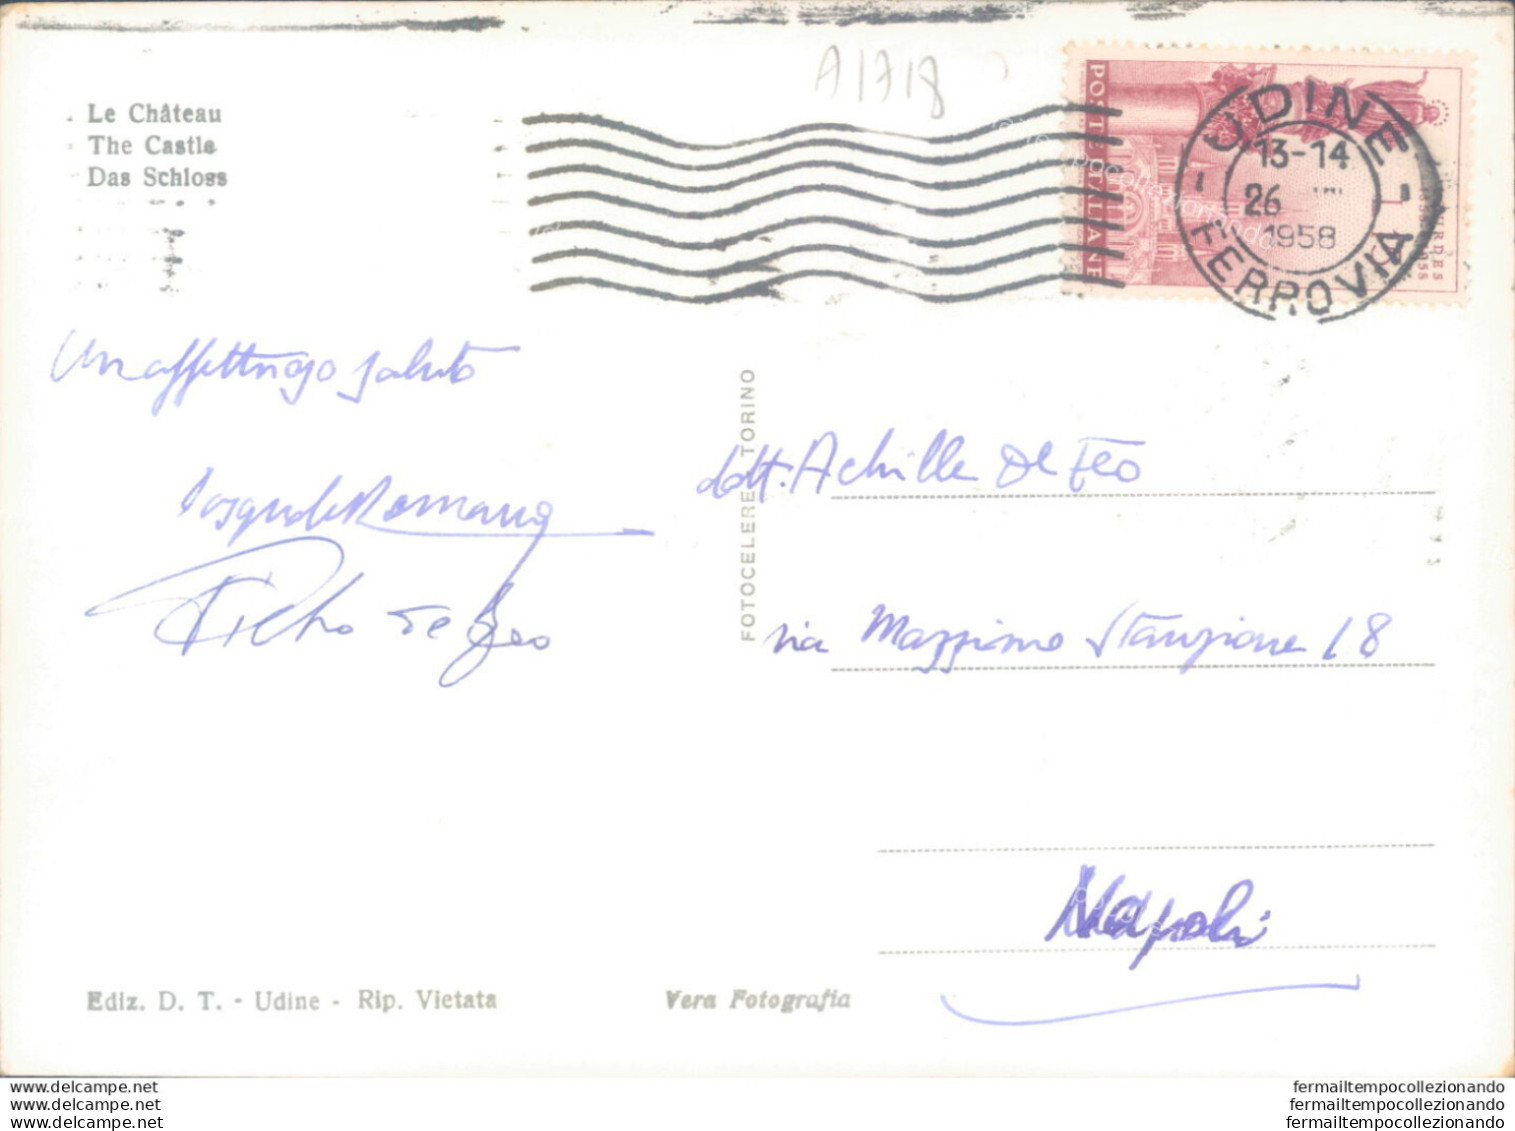 A1718
Le Château
The Castle
Das Schloss
POSTE ITALIANE
UDINE
13-14
26
1958
FERROVIA
Un affettuoso saluto
Romano
Pietro De Feo
FOTOCELERE TORINO
dott. Achille De Feo
via Mazzimo Stanzione 18
Napoli
Ediz. D. T. - Udine - Rip. Vietata
Vera Fotografia
www.delcampe.net
www.delcampe.net
www.delcampe.net
fermailtempocollezionando
fermailtempocollezionando
fermailtempocollezionando